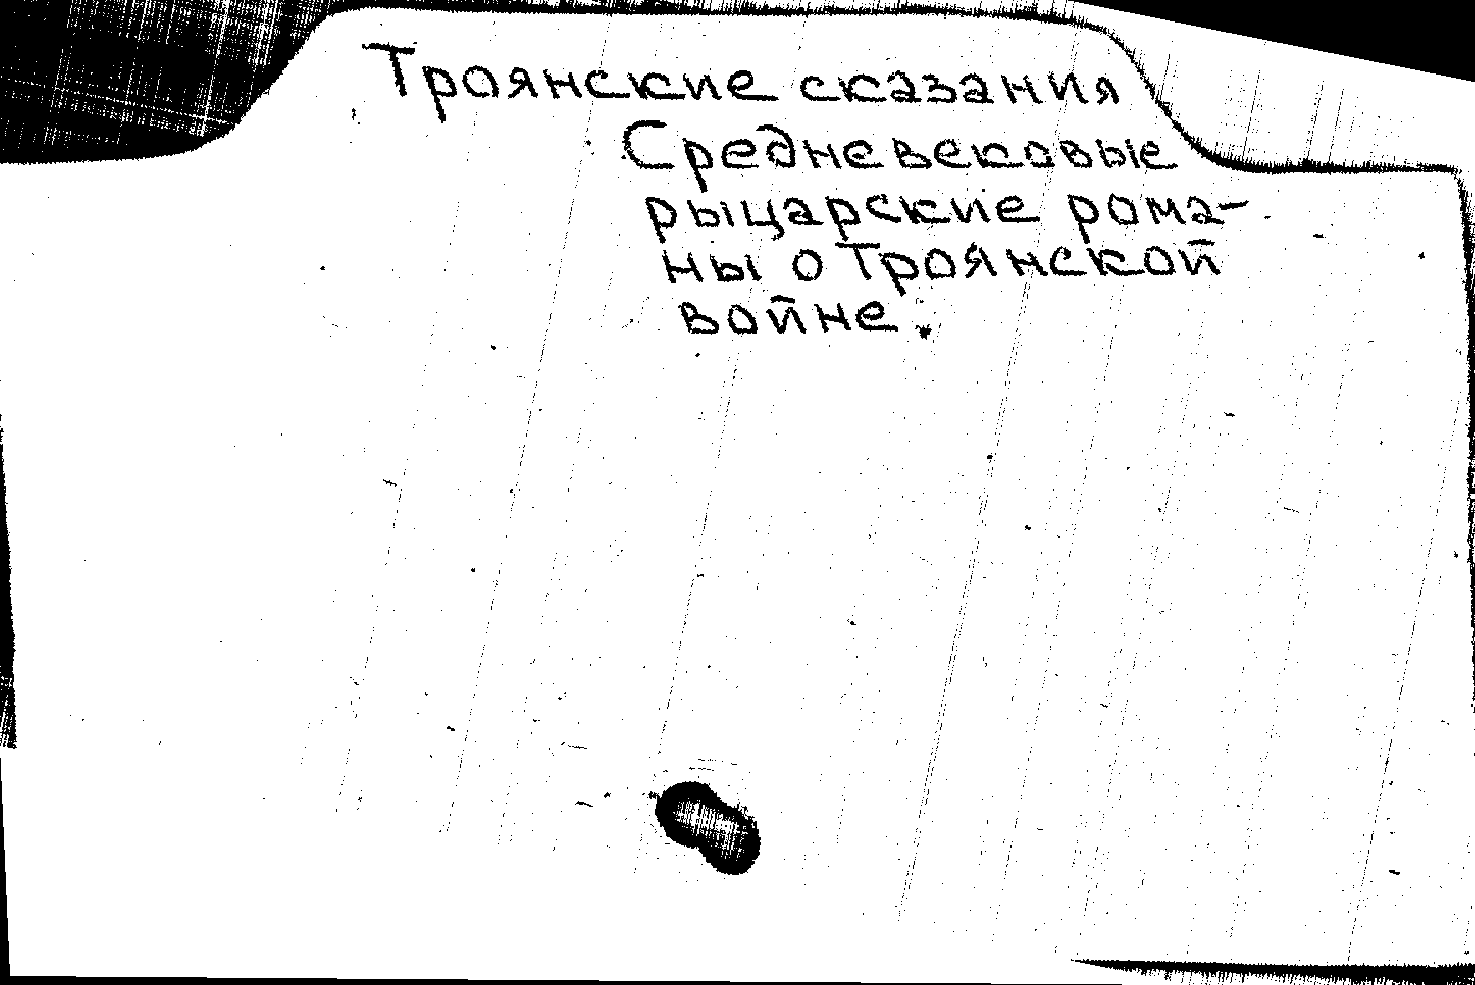 Троянские сказания
Средневековые
рыцарские рома-
ны о Троянской
войне.